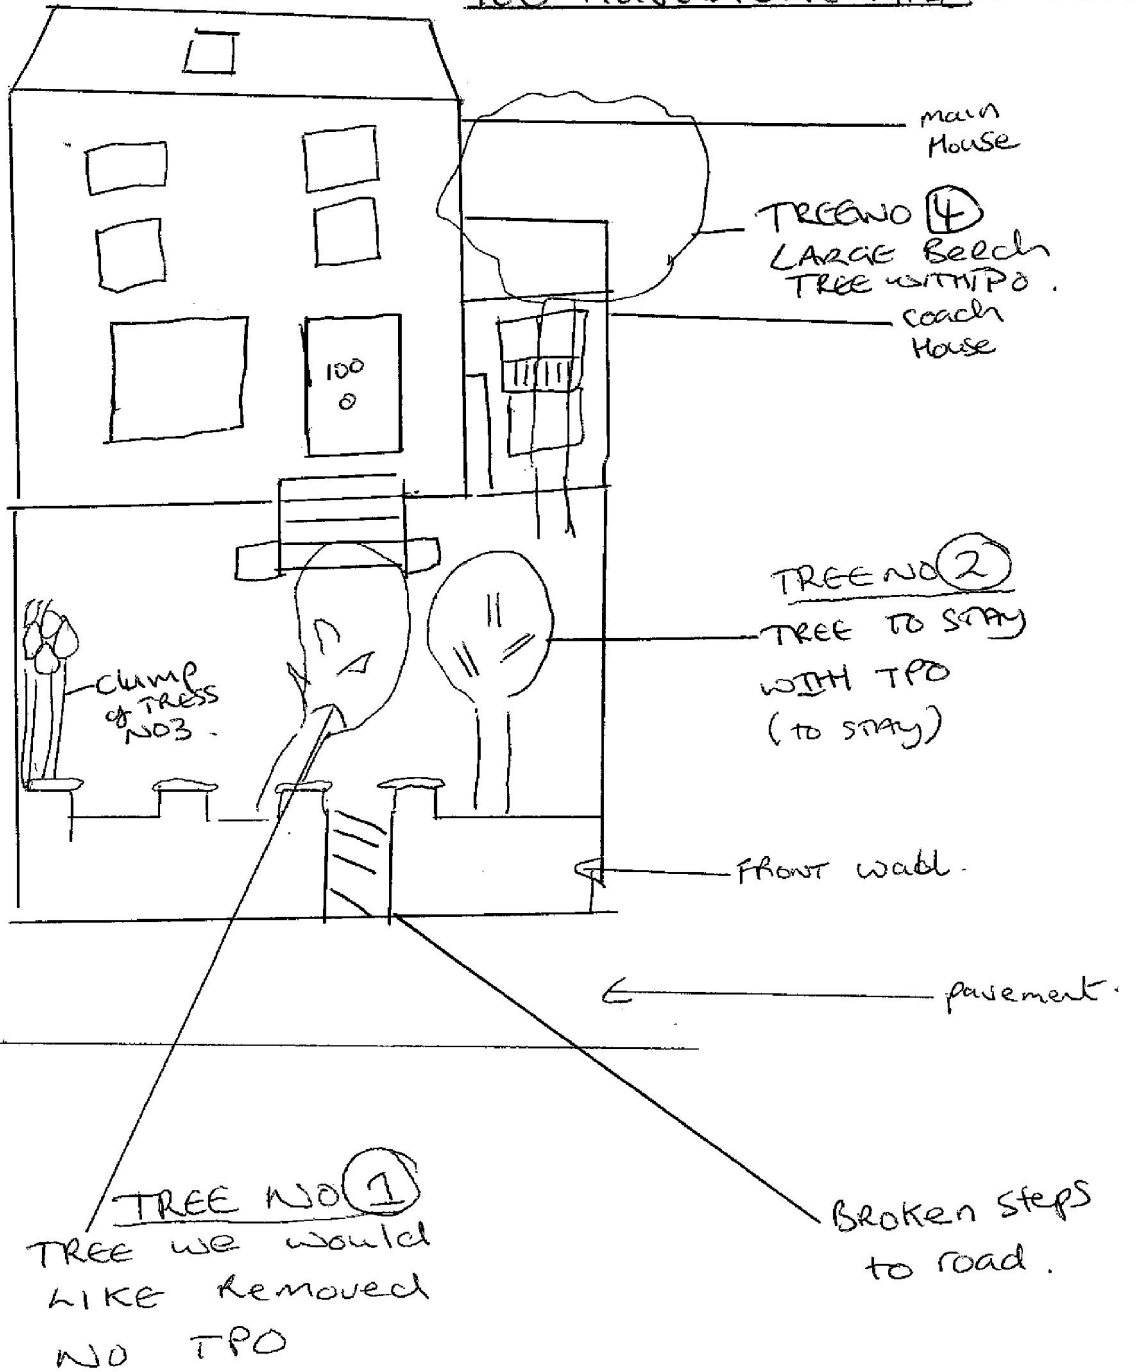 main
House
TREE NO 4
LARGE Beech
TREE WITH TPO.
coach
House
100
TREE NO 2
TREE TO STAY
WITH TPO
(to STAY)
clump
of TRESS
NO3.
FRONT wall.
pavement.
TREE NO 1
TREE we would
LIKE Removed
NO TPO
BROKEN Steps
to road.